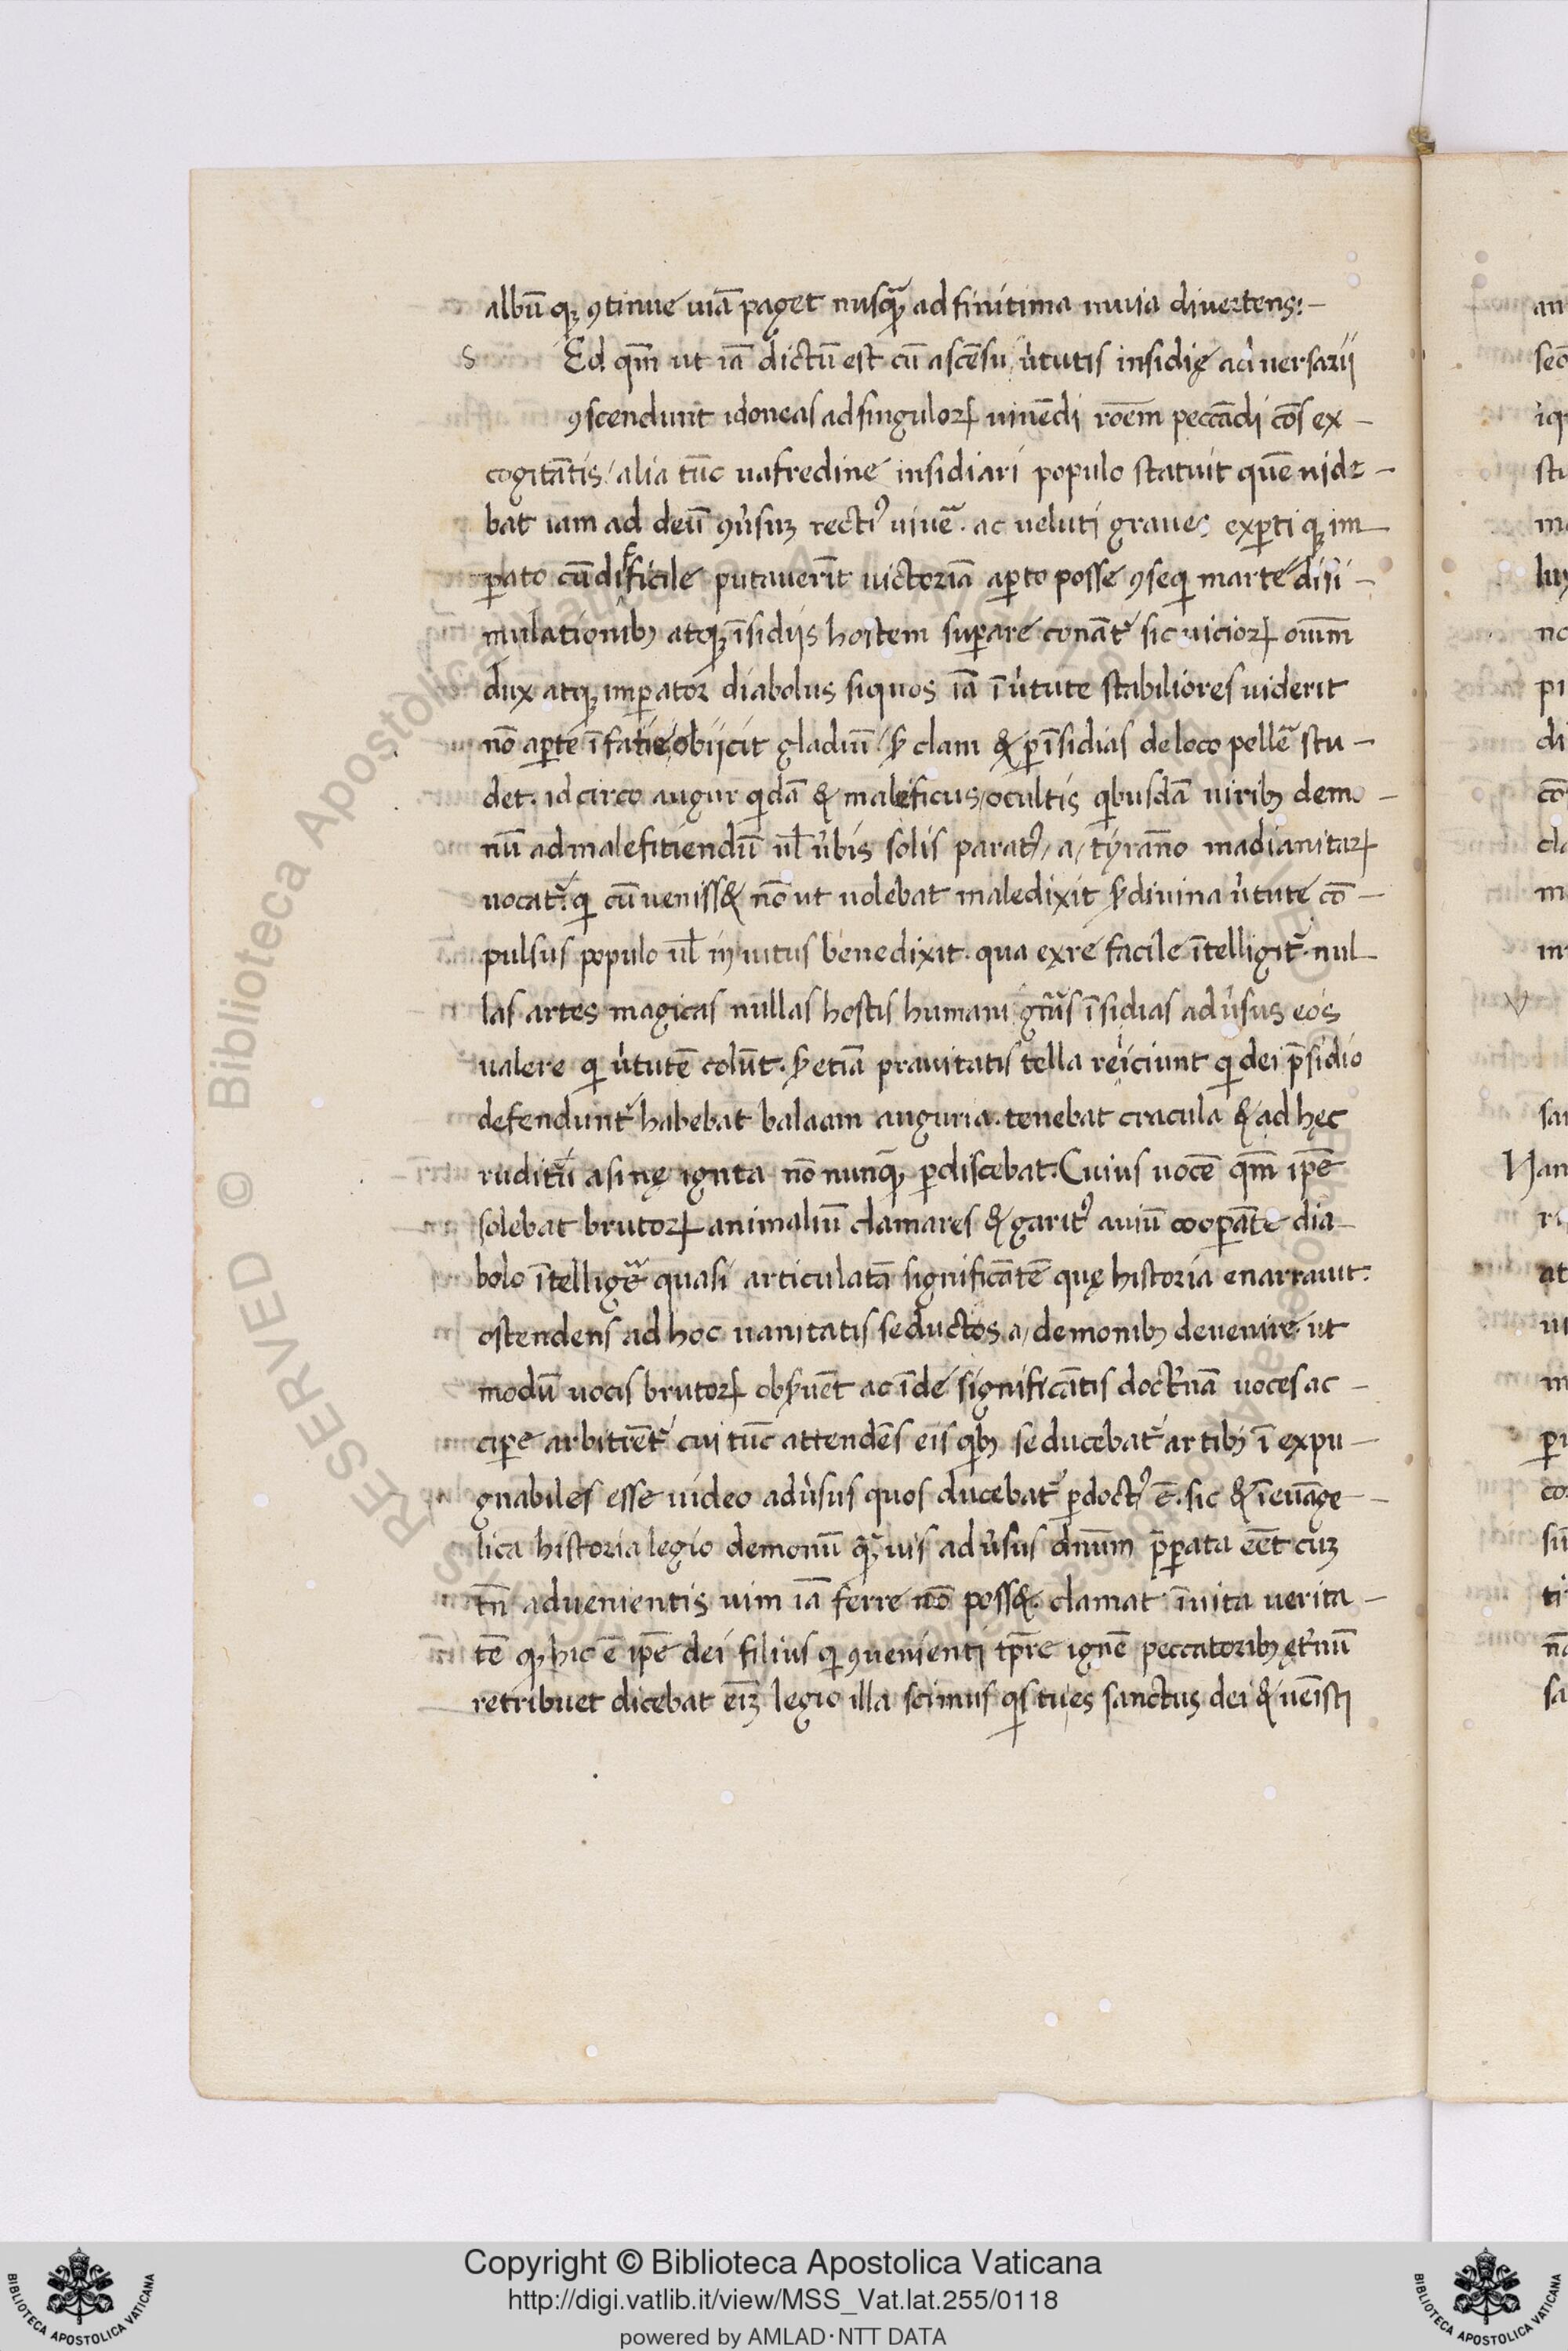 albū q; ꝯtinue uiā paget nusq̃; ad finitima inuia divertens:—
S Ed qm̄ ut iā dictū est cū ascēsu u̓tutis insidię adversarij
ꝯscendunt idoneas ad singuloꝝ uiuēdi roēm peccādi cōs ex—
cogitātis / alia tūc uafredine insidiari populo statuit quē uide—
bat iam ad deū ꝯu̓suꝫ rectiꝰ uiuẽ. ac ueluti graves exꝑti q; im—
ꝑato cū difficile putaverīt uictoriā aꝑto posse ꝯseqi marte disi—
mulationibꝫ atq; īsidijs hostem suꝑare conāt̃ sic uicioꝝ oīum
dux atq; imꝑator diabolus siquos iā ī u̓tute stabiliores uiderit
nō aꝑte ī fatie obijcit gladiū / s; clam & ꝑ īsidias de loco pellẽ stu—
det. id circo augur qidā & maleficus / ocultis qibusdā uiribꝫ demo—
nū ad malefitiendū ul̄ u̓bis solis paratꝰ / a / tyrāno madianitaꝝ
uocat̃: qi cū veniss& nō ut uolebat maledixit s; divina u̓tute cō—
pulsus populo ul̄ invitus benedixit. qua ex re facile ītelligit̃. nul—
las artes magicas nullas hostis humani gn̄is īsidias adu̓sus eos
ualere qi u̓tutē colūt. s; etiā pravitatis tella reijciunt qi dei p̄sidio
defendunt̃ habebat balaam auguria. tenebat oracula & ad hęc
ruditū asinę ignota nō nunq̃; ꝑdiscebat. Cuius vocē qm̄ ip̄e
solebat brutoꝝ animaliū clamares & garitꝰ aviū cooꝑāte dia—
bolo ītelligẽ quasi articulatā significātē quę historia enarrauit.
ostendens ad hoc uanitatis seductos a / demonibꝫ devenire. ut
modū uocis brutoꝝ obs;uēt ac īde significātis doctr̓nā uoces ac—
ciꝑe arbitrēt̃ cui tūc attendēs eis qibꝫ seducebat̃ artibꝫ ī expu—
gnabiles esse uideo adu̓sus quos ducebat̃ ꝑdoctꝰ ē. sic & ī euāge—
lica historia legio demonū q̃;vis adu̓sus dn̄um p̄ꝑata eēt cuꝫ
tn̄ advenientis uim iā ferre nō poss&. clamat īuita verita—
tē q; hic ē ip̄e dei filius qi ꝯvenienti tp̄re ignē peccatoribꝫ ęt̓nū
retribuet dicebat eīꝫ legio illa scimus qis tu es sanctus dei & ueīsti
RESERVED © Biblioteca Apostolica Vaticana
Copyright © Biblioteca Apostolica Vaticana
http://digi.vatlib.it/view/MSS_Vat.lat.255/0118
powered by AMLAD·NTT DATA
BIBLIOTECA APOSTOLICA VATICANA
BIBLIOTECA APOSTOLICA VATICANA